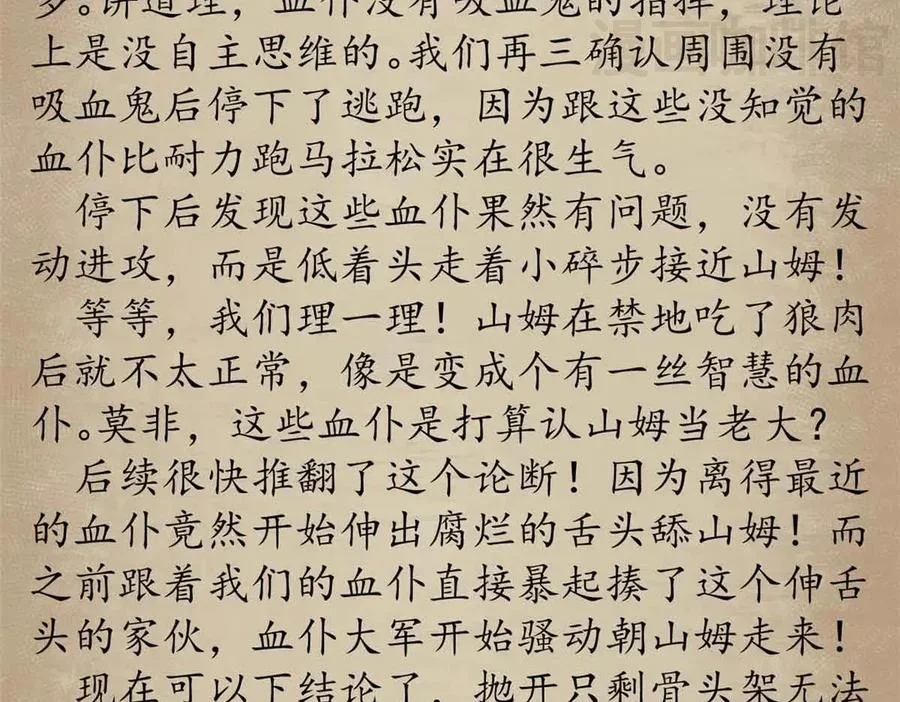 多。讲道理，血仆没有吸血鬼的指挥，理论
上是没自主思维的。我们再三确认周围没有
吸血鬼后停下了逃跑，因为跟这些没知觉的
血仆比耐力跑马拉松实在很生气。
停下后发现这些血仆果然有问题，没有发
动进攻，而是低着头走着小碎步接近山姆！
等等，我们理一理！山姆在禁地吃了狼肉
后就不太正常，像是变成个有一丝智慧的血
仆。莫非，这些血仆是打算认山姆当老大？
后续很快推翻了这个论断！因为离得最近
的血仆竟然开始伸出腐烂的舌头舔山姆！而
之前跟着我们的血仆直接暴起揍了这个伸舌
头的家伙，血仆大军开始骚动朝山姆走来！
现在可以下结论了，抛开只剩骨头架无法